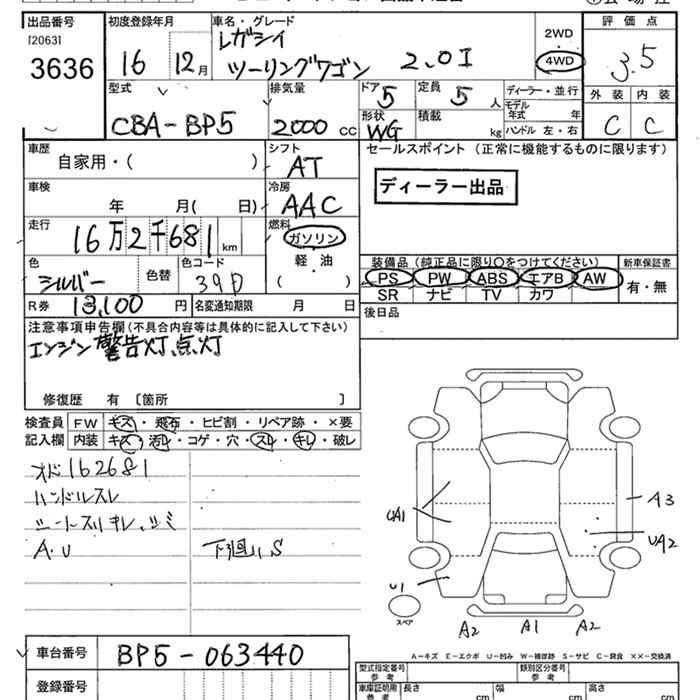 出品番号 初度登録年月 車名・グレード 評価点
[2063] レガシィ 2WD
3636 16 12月 ツーリングワゴン 2.0I 4WD 3.5
外装 内装
型式 排気量 ドア 定員 ディーラー・並行
CBA-BP5 2000 CC 5 5人 モデル年式 年
形状 積載 C C
WG kg ハンドル 左・右
車歴 シフト セールスポイント (正常に機能するものに限ります)
自家用・( ) AT
車検 冷房 ディーラー出品
年 月( 日) AAC
走行 燃料
16万2千681km ガソリン
軽・油
( )
装備品 (純正品に限り○をつけてください) 新車保証書
色 色替 色コード PS PW ABS エアB AW 有・無
シルバー 39D SR ナビ TV カワ
R券 13,100円 名変通知期限 月 日 後日品
注意事項申告欄(不具合内容等は具体的に記入して下さい)
エンジン警告灯、点灯
修復歴 有 [箇所 ]
検査員 FW キズ・飛石・ヒビ割・リペア跡・×要
記入欄 内装 キズ・汚レ・コゲ・穴・スレ・キレ・破レ
オド162681
ハンドルスレ
シートスリキレ、シミ
A.U 下廻り、S
UA1 A3
UA2
U1
スペア
A2 A1 A2
A-キズ E-エクボ U-凹み W-補修跡 S-サビ C-腐食 ××-交換済
車台番号 BP5-063440 型式指定番号 類別区分番号
参考 参考
登録番号 車庫証明用 長さ 幅 高さ
参考 cm cm cm